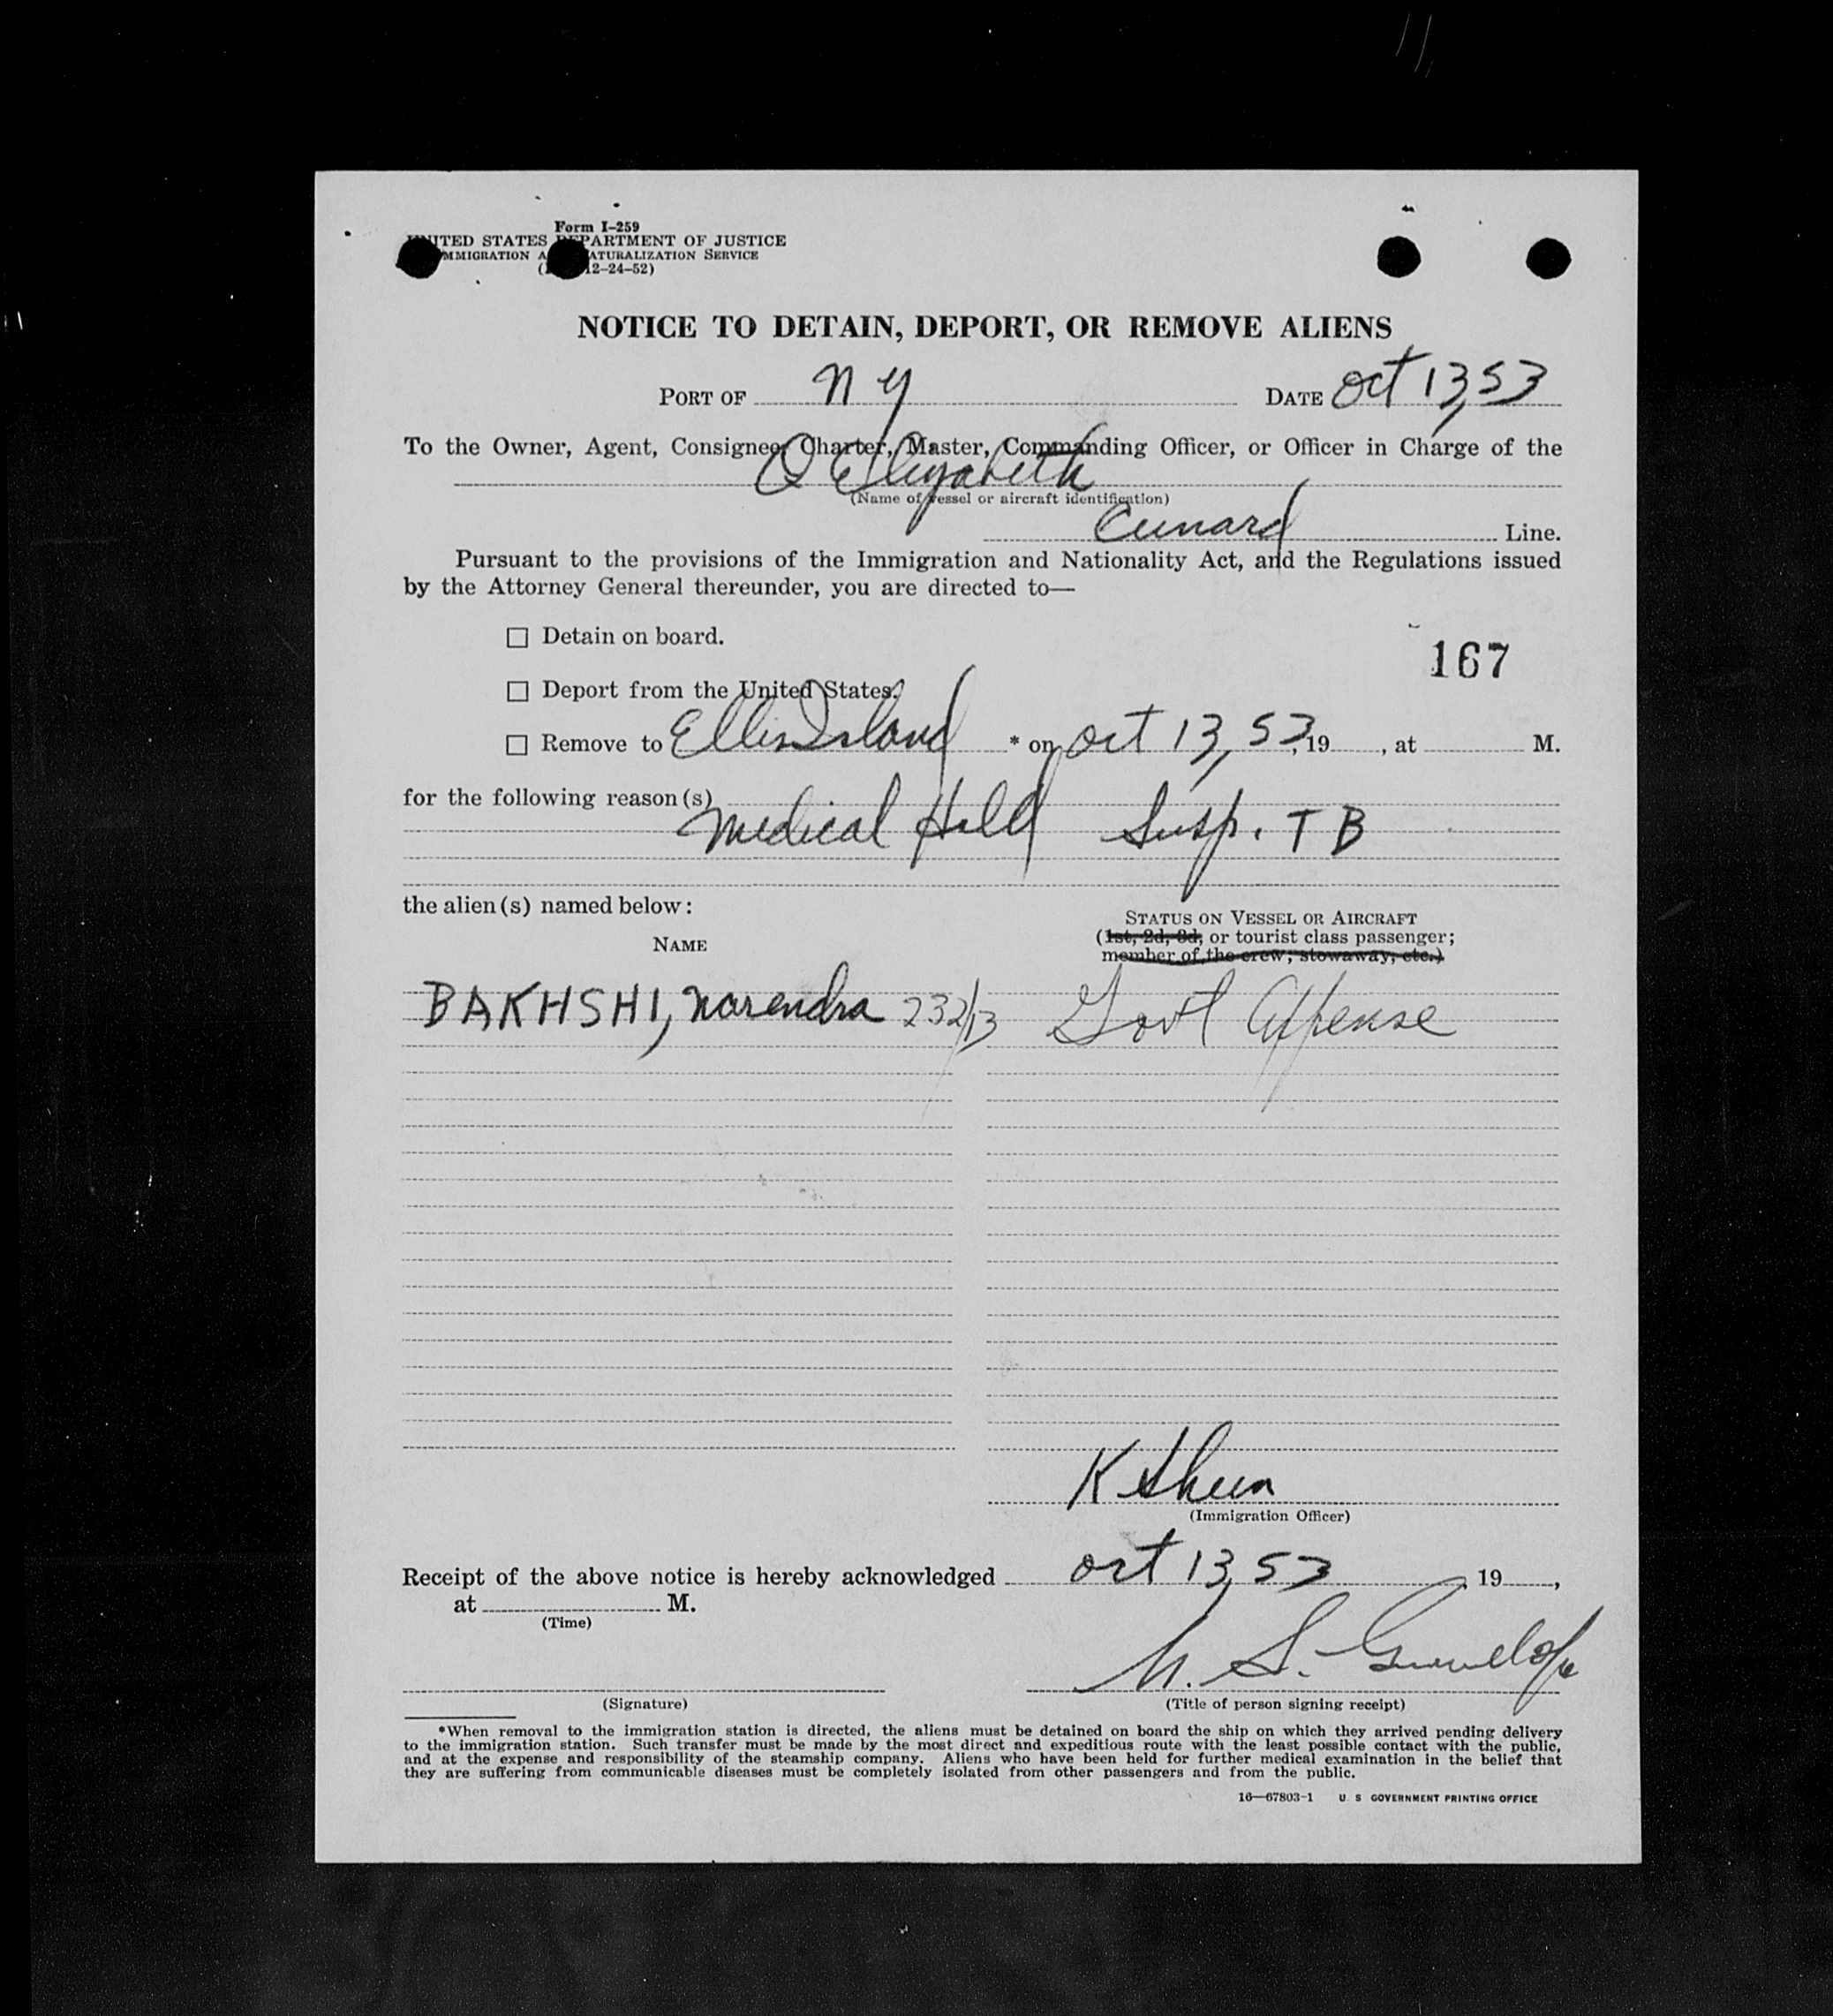 Form I-259
UNITED STATES DEPARTMENT OF JUSTICE
IMMIGRATION AND NATURALIZATION SERVICE
12-24-52)
NOTICE TO DETAIN, DEPORT, OR REMOVE ALIENS
PORT OF N Y DATE Oct 13, 53
To the Owner, Agent, Consignee, Charter, Master, Commanding Officer, or Officer in Charge of the
Q Elizabeth
(Name of vessel or aircraft identification)
Cunard Line.
Pursuant to the provisions of the Immigration and Nationality Act, and the Regulations issued
by the Attorney General thereunder, you are directed to—
☐ Detain on board.
167
☐ Deport from the United States.
☐ Remove to Ellis Island * on Oct 13, 53, 19 , at M.
for the following reason(s)
Medical Hold Susp. T B
the alien(s) named below:
NAME
STATUS ON VESSEL OR AIRCRAFT
(1st, 2d, 3d, or tourist class passenger;
member of the crew; stowaway, etc.)
BAKHSHI, Narendra 232/13 Govt Expense
K Sheen
(Immigration Officer)
Receipt of the above notice is hereby acknowledged Oct 13, 53 19 ,
at M.
(Time)
(Signature)
(Title of person signing receipt)
*When removal to the immigration station is directed, the aliens must be detained on board the ship on which they arrived pending delivery
to the immigration station. Such transfer must be made by the most direct and expeditious route with the least possible contact with the public,
and at the expense and responsibility of the steamship company. Aliens who have been held for further medical examination in the belief that
they are suffering from communicable diseases must be completely isolated from other passengers and from the public.
16—67803-1 U. S. GOVERNMENT PRINTING OFFICE